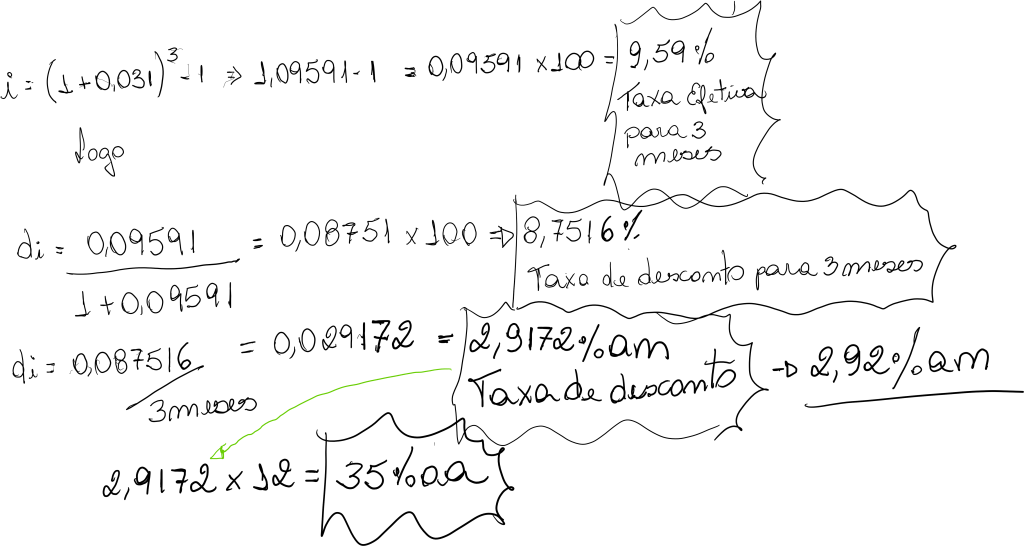 i = (1+0,031)³ - 1 ⇒ 1,09591 - 1 = 0,09591 x 100 = 9,59%
Taxa Efetiva
para 3
meses
Logo
di = 0,09591 = 0,08751 x 100 ⇒ 8,7516%
1 + 0,09591
Taxa de desconto para 3 meses
di = 0,087516 = 0,029172 = 2,9172% am → 2,92% am
3 meses
Taxa de desconto
2,9172 x 12 = 35% aa